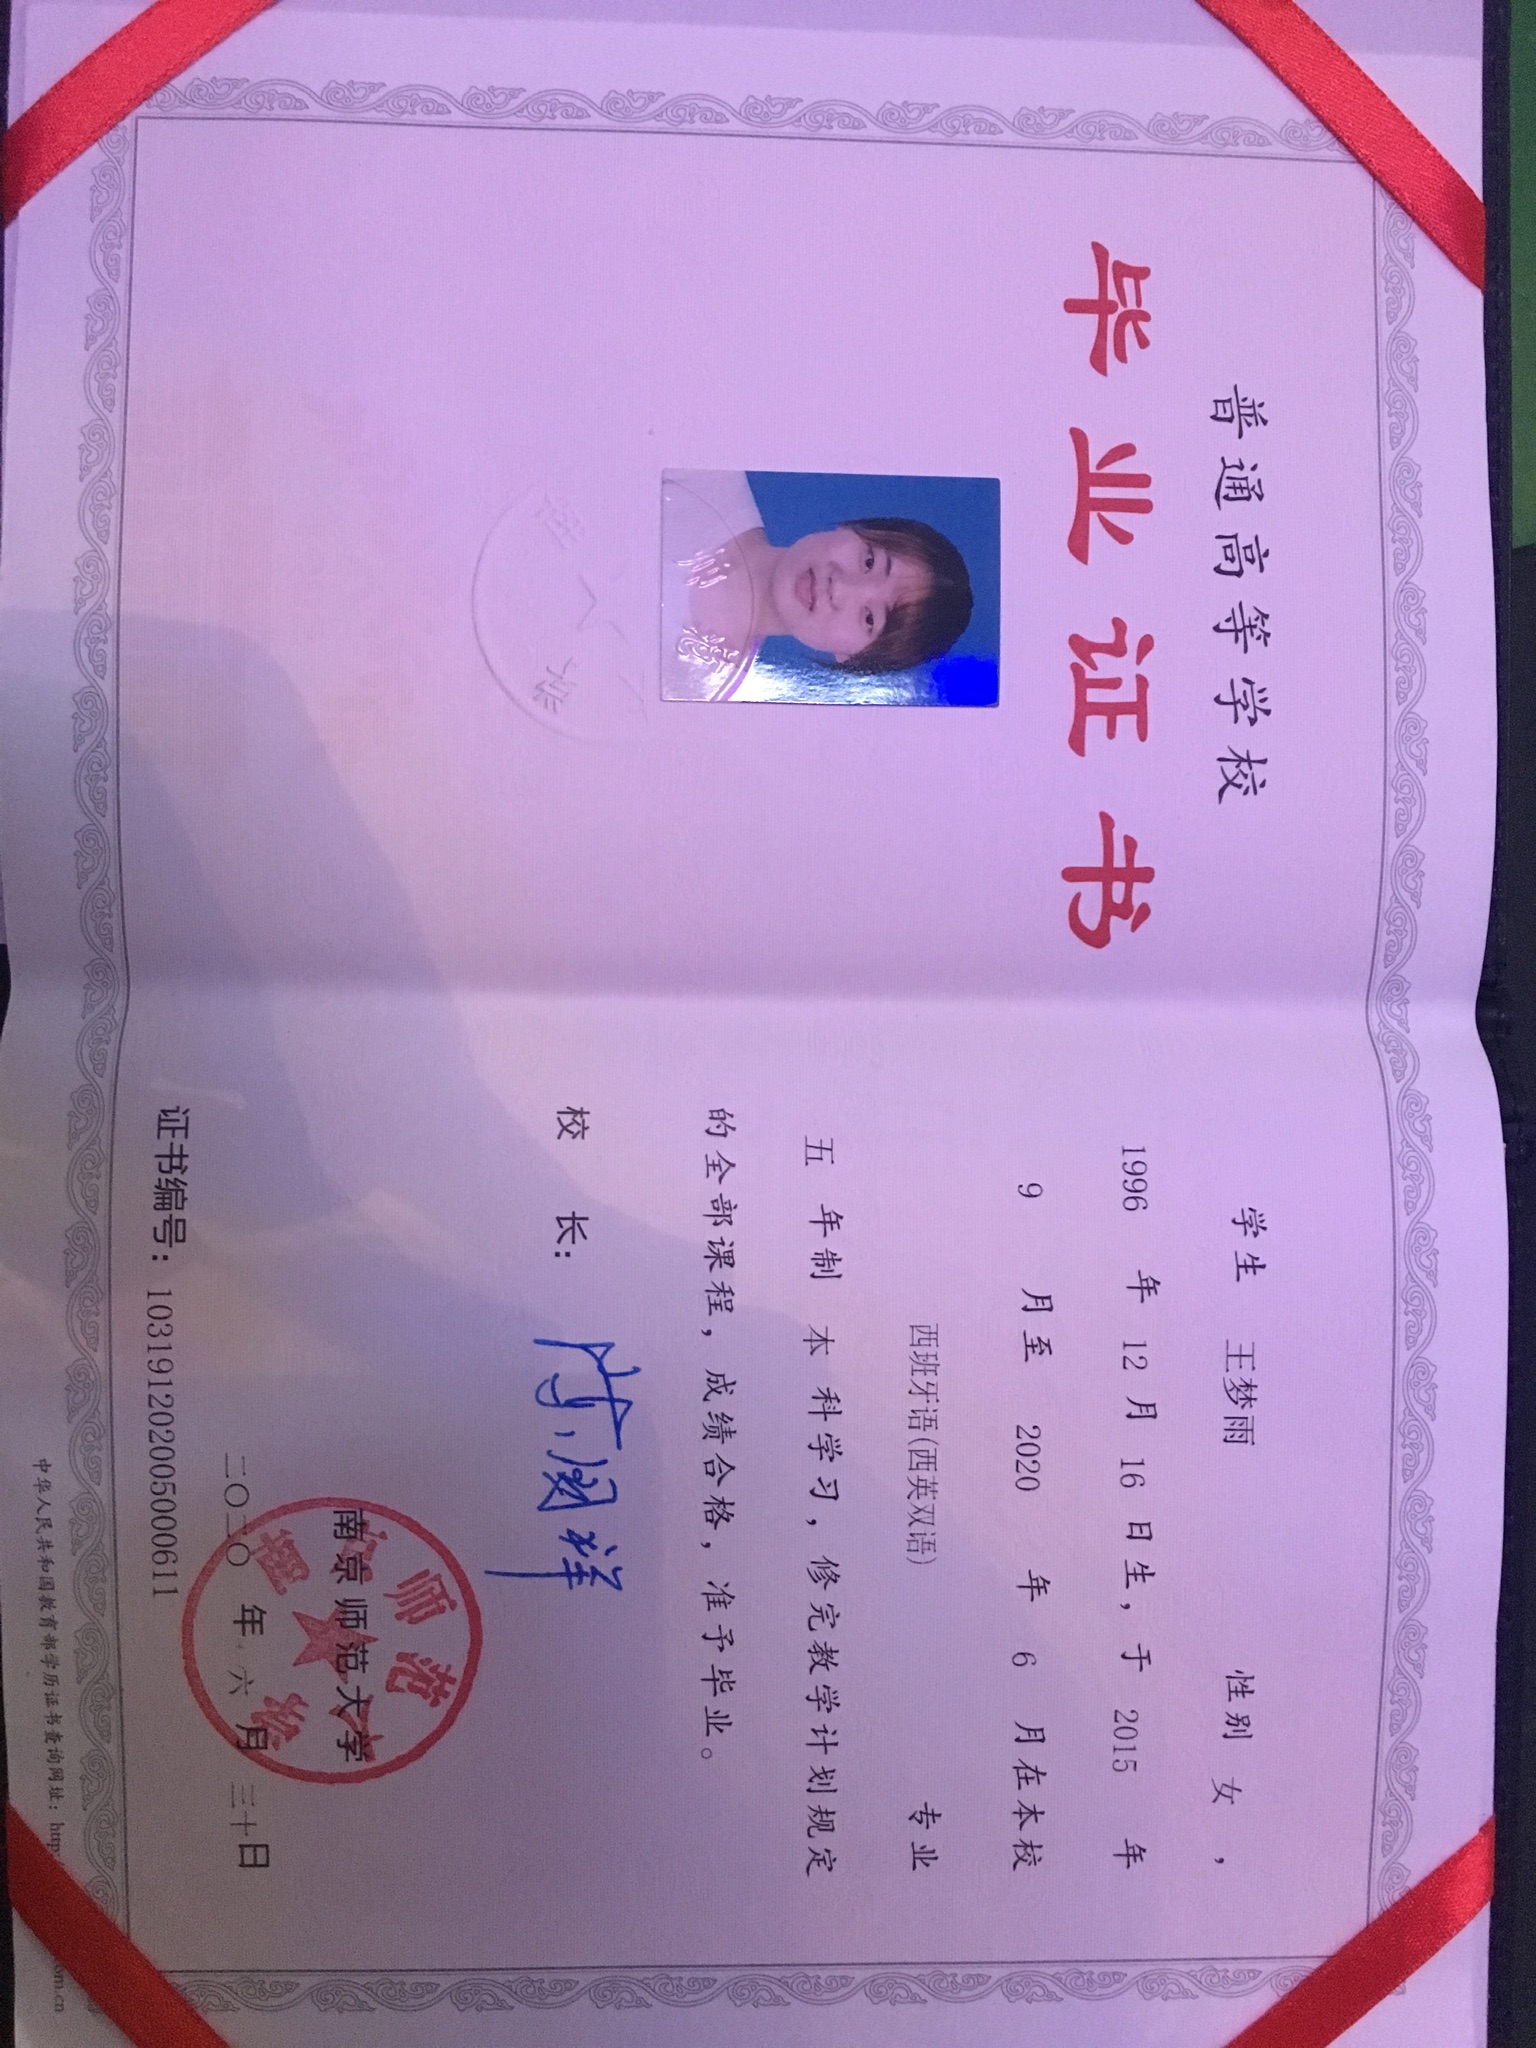 普通高等学校
毕业证书
学生 王梦雨 性别 女,
1996 年 12 月 16 日生,于 2015 年
9 月至 2020 年 6 月在本校
西班牙语(西英双语) 专业
五 年制 本 科学习,修完教学计划规定
的全部课程,成绩合格,准予毕业。
校 长:
南京师范大学
二〇二〇 年 六 月 三十日
证书编号:103191202005000611
中华人民共和国教育部学历证书查询网址:http
om.cn